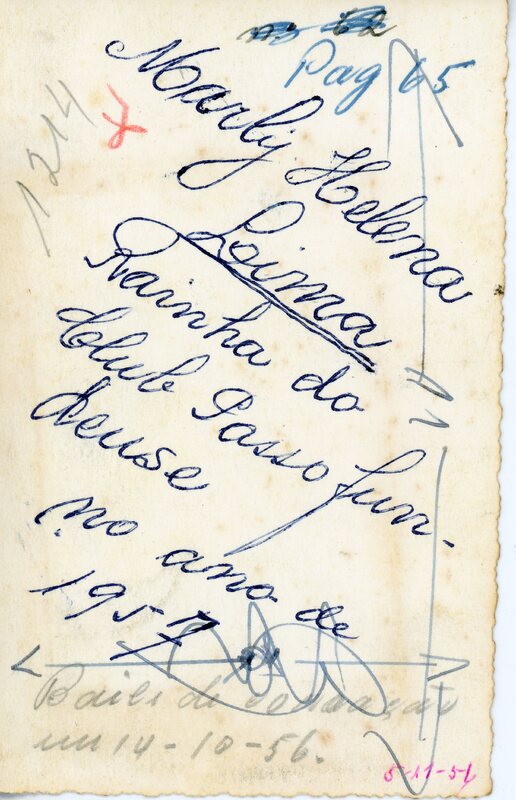 Pag 65
1214
Marly Helena
Loima
Rainha do
Club Passo fun-
dense
no ano de
1957
11
Baile de coroação
em 14-10-56.
5-11-56